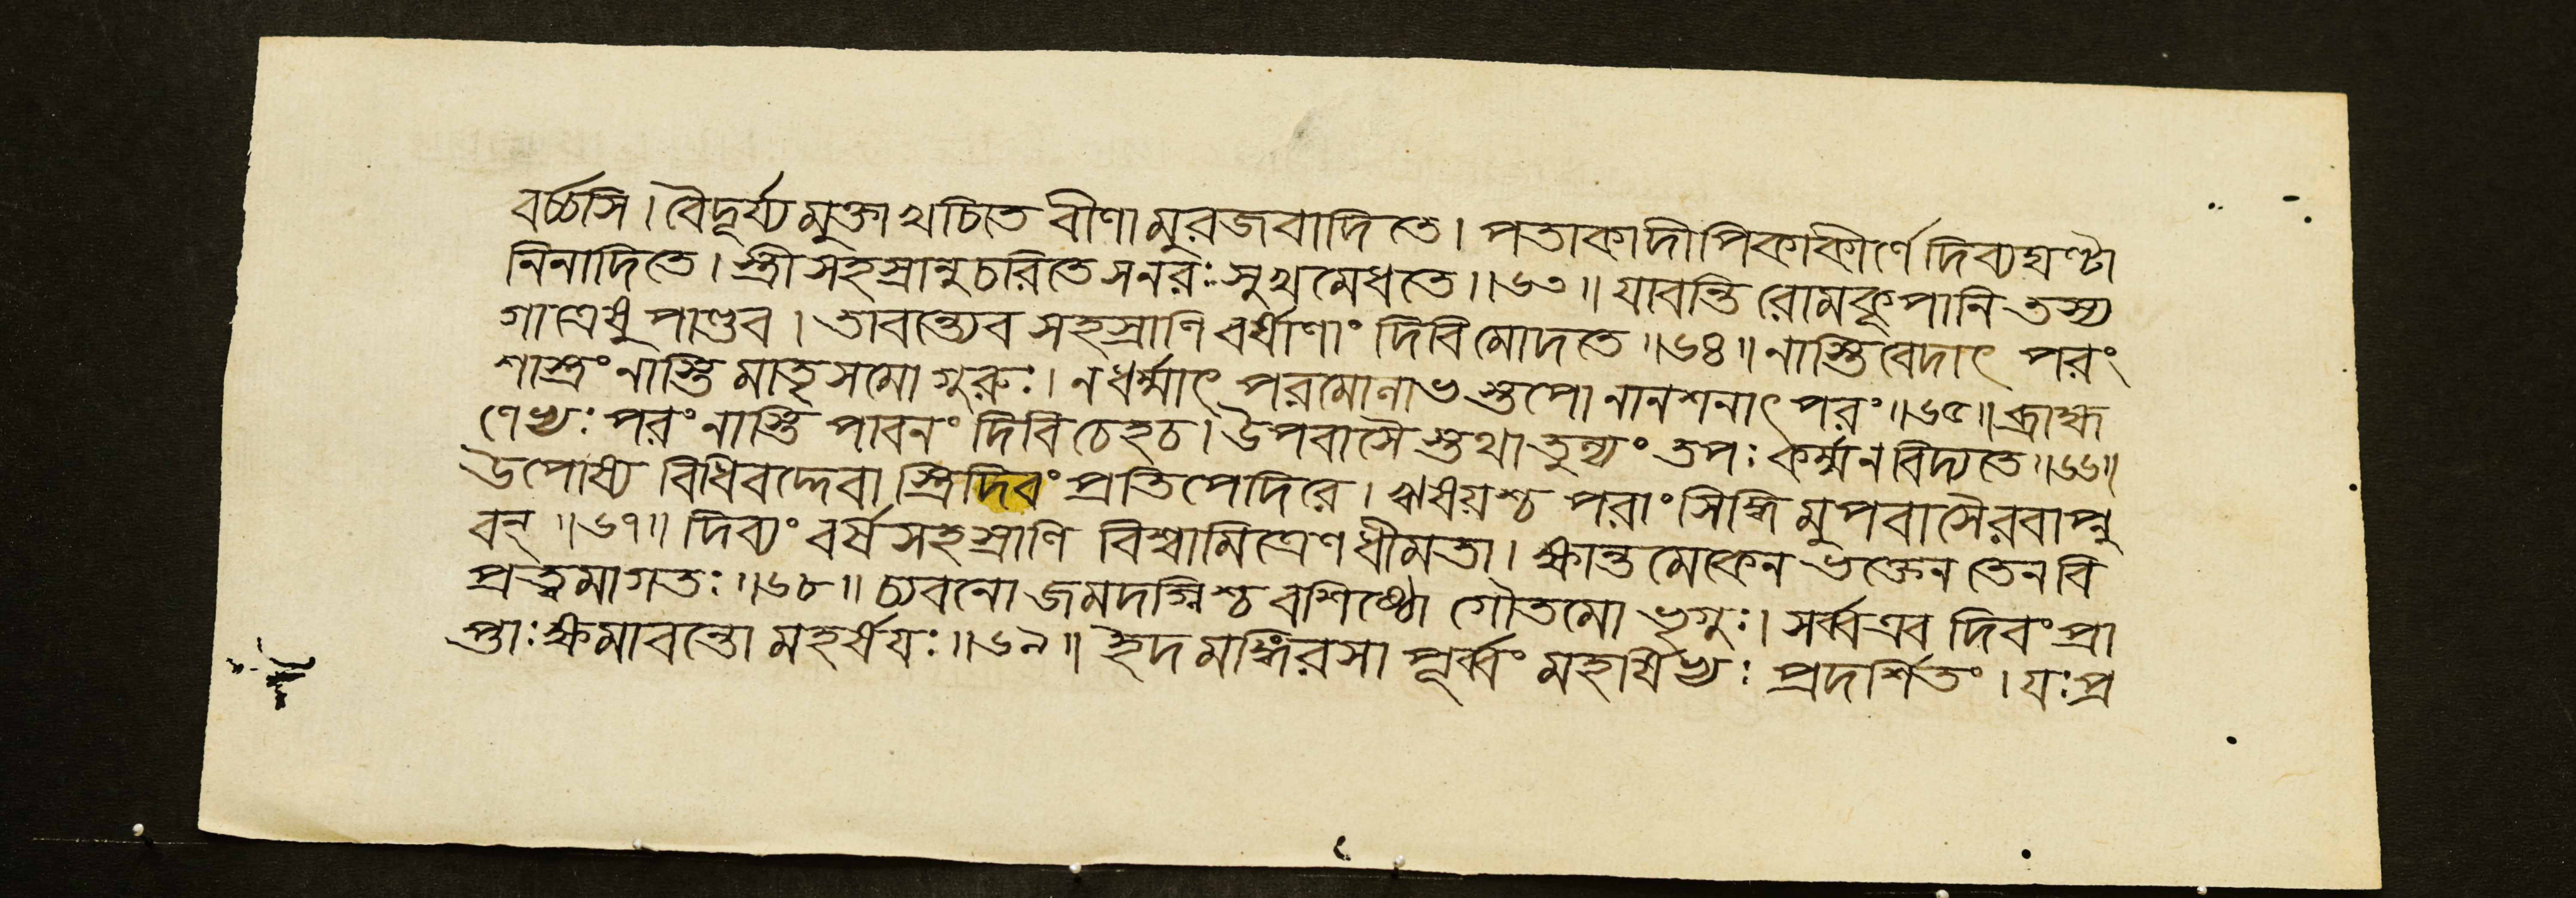 বর্চ্চসি। বৈদূর্য্যমুক্তাখচিতে বীণামুরজবাদিতে। পতাকাদীপিকাকীর্ণে দিব্যঘণ্টা
নিনাদিতে। স্ত্রীসহস্রানুচরিতে সনরঃ সুখমেধতে॥৬৩॥ যাবন্তি রোমকূপানি তস্য
গাত্রেষু পাণ্ডব। তাবন্ত্যেব সহস্রাণি বর্ষাণাং দিবি মোদতে॥৬৪॥ নাস্তি বেদাৎ পরং
শাস্ত্রং নাস্তি মাতৃসমো গুরুঃ। ন ধর্ম্মাৎ পরমোনাভ স্তপো নানশনাৎ পরং॥৬৫॥ ব্রাহ্ম
ণেভ্যঃ পরং নাস্তি পাবনং দিবি চেহ চ। উপবাসৈ স্তথা তুল্যং তপঃ কর্ম্ম ন বিদ্যতে॥৬৬॥
উপোষ্য বিধিবদ্দেবা স্ত্রিদিবং প্রতিপেদিরে। ঋষয়শ্চ পরাং সিদ্ধি মুপবাসৈরবাপ্নু
বন্॥৬৭॥ দিব্যং বর্ষসহস্রাণি বিশ্বামিত্রেণ ধীমতা। ক্ষান্তমেকেন ভক্তেন তেন বি
প্রত্বমাগতঃ॥৬৮॥ চ্যবনো জমদগ্নিশ্চ বশিষ্ঠো গৌতমো ভৃগুঃ। সর্ব্ব এব দিবং প্রা
প্তাঃ ক্ষমাবন্তো মহর্ষযঃ॥৬৯॥ ইদমাঙ্গিরসা পূর্ব্বং মহর্ষিভ্যঃ প্রদর্শিতং। যঃ প্র